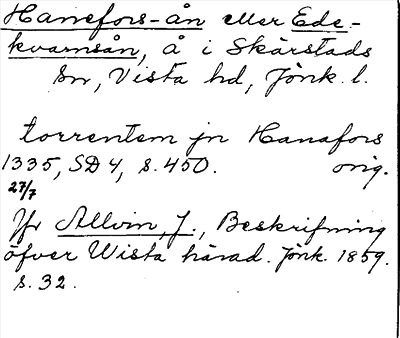 Hanefors-ån eller Ede-
kvarnsån, å i Skärstads
sn, Vista hd, Jönk. l.
torrentem jn Hanafors
1335, SD 4, s. 450. orig.
27/7
Jfr Allvin, J., Beskrifning
öfver Wista härad. Jönk. 1859.
s. 32.